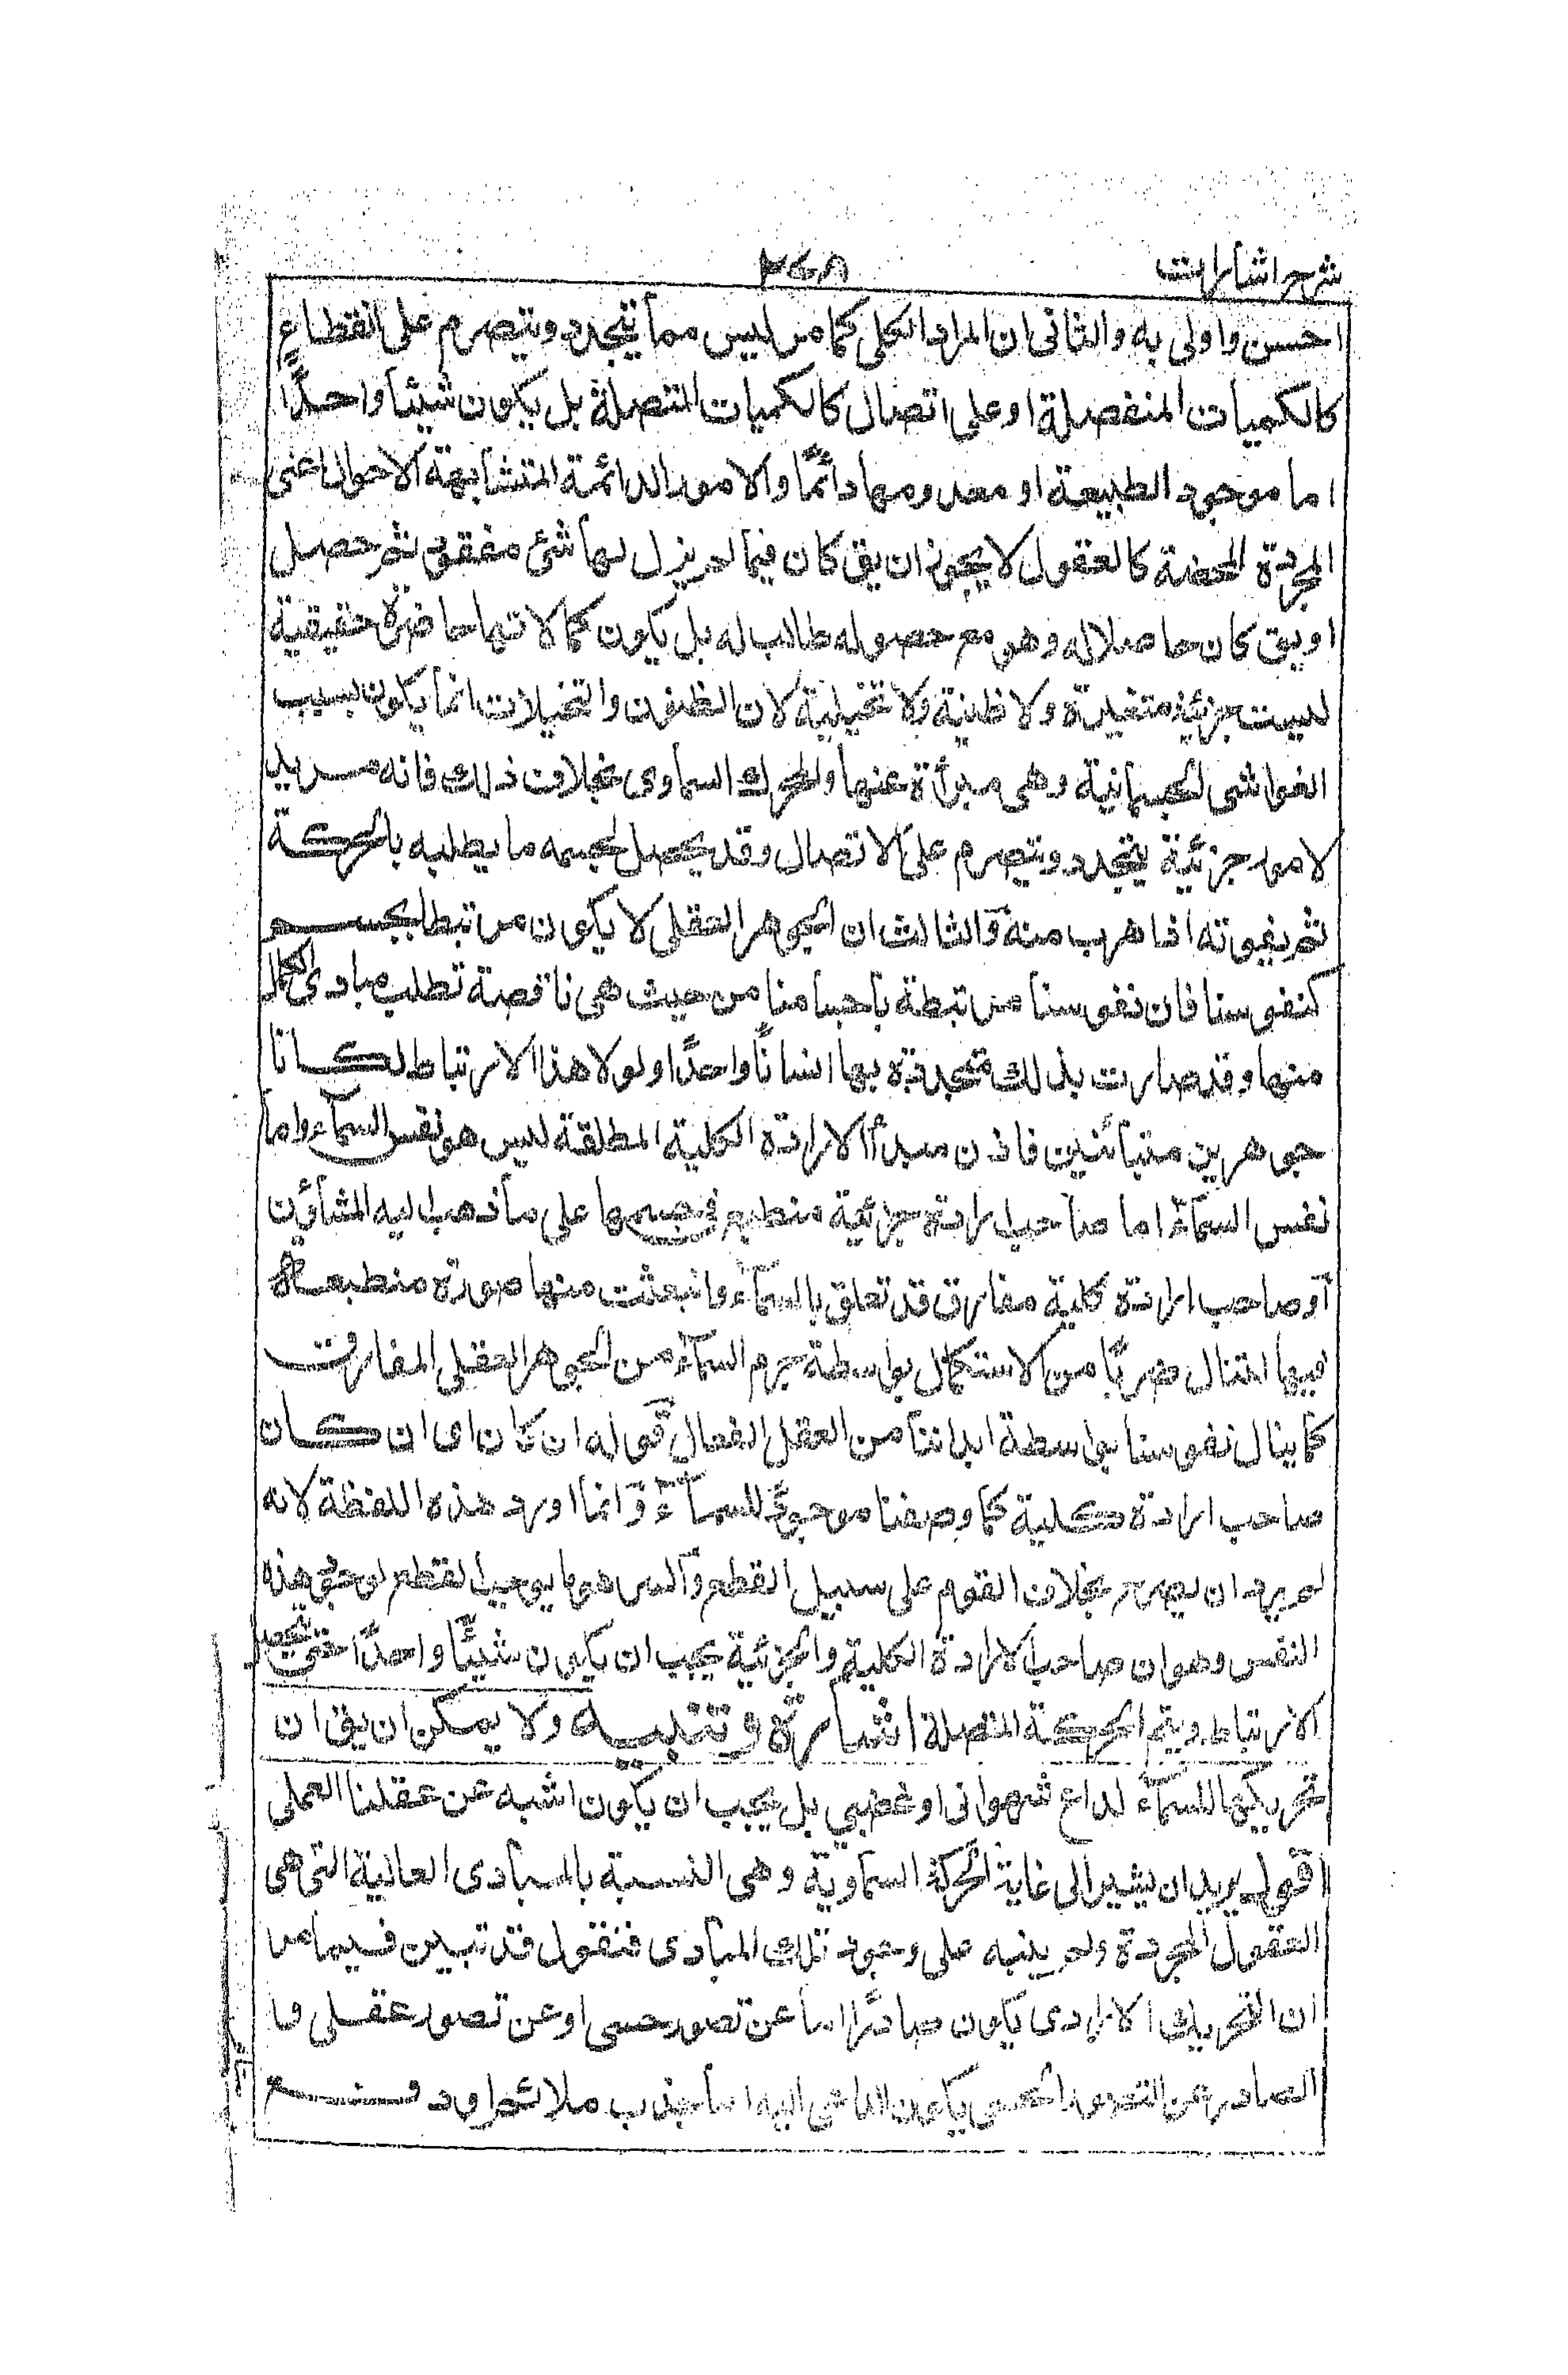 شرح اشارات
٢٦٨
احسن واولى به والثانى ان المراد الكلى كما مر ليس مما يتجدد ويتصرم على انقطاع
كالكميات المنفصلة او على اتصال كالكميات المتصلة بل يكون شيئا واحدًا
اما موجود الطبيعة او معدومها دائمًا والامور الدائمة المتشابهة الاحوال اعنى
المجردة المحضة كالعقول لا يجوز ان يق كان فيما لم يزل لها شئ مفقود ثم حصل
او يق كان حاصلا له وهو مع حصوله طالب له بل يكون كمالاتها حاضرة حقيقية
ليست جزئية متغيرة ولا ظنية ولا تخيلية لان الظنون والتخيلات انما يكون بسبب
الغواشى الجسمانية وهى مبرأة عنها والمحرك السماوى بخلاف ذلك فانه مريد
لامور جزئية يتجدد ويتصرم على الاتصال وقد يحصل لجسمه ما يطلبه بالحركة
ثم يفوته اذا هرب منه والثالث ان الجوهر العقلى لا يكون مرتبطا بجسم
كنفوسنا فان نفوسنا مرتبطة باجسامنا من حيث هى ناقصة تطلب مبادى الكمال
منها وقد صارت بذلك متحدة بها انسانًا واحدًا ولولا هذا الارتباط لكانا
جوهرين متبائنين فاذن مبدأ الارادة الكلية المطلقة ليس هو نفس السماء واما
نفس السماء اما صاحب ارادة جزئية منطبع فى جسمها على ما ذهب اليه المشاؤن
او صاحب ارادة كلية مفارق قد تعلق بالسماء وانبعثت منها صورة منطبعة
فيها لتنال ضربًا من الاستكمال بواسطة جرم السماء من الجوهر العقلى المفارق
كما ينال نفوسنا بواسطة ابداننا من العقل الفعال قوله ان كان اى ان كان
صاحب ارادة كلية كما وصفنا موجودًا للسماء وانما اورد هذه اللفظة لانه
لم يرد ان يصرح بخلاف القوم على سبيل القطع والسر هو ما يوجب القطع بوجود هذه
النفس وهو ان صاحب الارادة الكلية والجزئية يجب ان يكون شيئًا واحدًا حتى يحصل
الارتباط ويتم الحركة المتصلة اشارة وتنبيه ولا يمكن ان يق ان
تحريكها للسماء لداع شهوانى او غضبى بل يجب ان يكون اشبه عن عقلنا العملى
اقول يريد ان يشير الى غاية الحركة السماوية وهى النسبة بالمبادى العالية التى هى
العقول المجردة ولم ينبه على وجود تلك المبادى فنقول قد تبين فيما مر
ان التحريك الارادى يكون صادرًا اما عن تصور حسى او عن تصور عقلى وا
الصادر عن التصور الحسى يكون الداعى اليه اما جذب ملائم او دفع